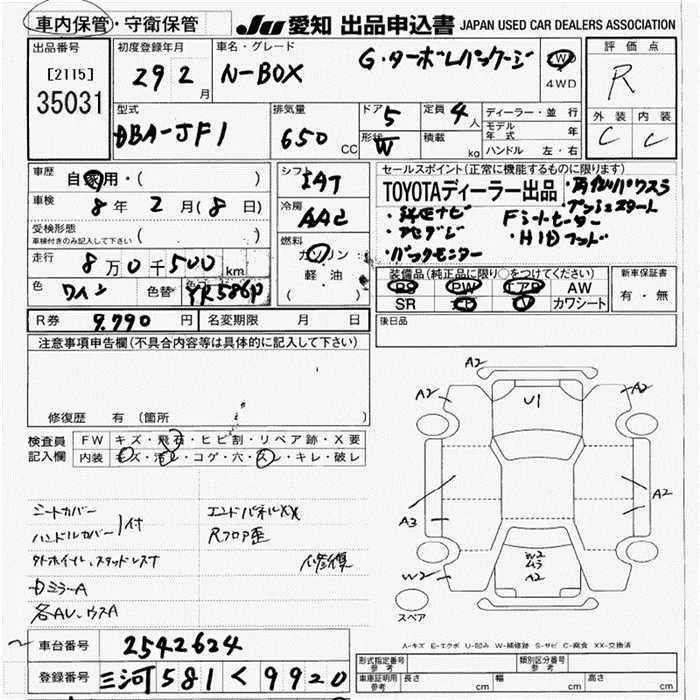 車内保管・守衛保管 JU 愛知 出品申込書 JAPAN USED CAR DEALERS ASSOCIATION
出品番号 [2115] 35031
初度登録年月 29 2月
車名・グレード N-BOX G・ターボLパッケージ
2WD 4WD
評価点 R
外装 内装
C C
型式 DBA-JF1
排気量 650 CC
ドア 5
形状 W
定員 4人
積載 kg
ディーラー・並行
モデル年式 年
ハンドル 左・右
車歴 自家用・( )
車検 8年 2月(8日)
受検形態
車検付きのみ記入して下さい ( )
走行 8万0千500km
色 ワイン 色替 YR586P
シフト IAT
冷房 AAC
燃料 ガソリン
軽油
( )
セールスポイント(正常に機能するものに限ります)
TOYOTAディーラー出品
・両側パワスラ
・プッシュスタート
・純正ナビ Fシートヒーター
・フルセグ ・HIDライト
・バックモニター
装備品(純正品に限り○をつけてください)
PS PW エアB AW
SR カワシート
新車保証書
有・無
後日品
R券 9.790円 名変期限 月 日
注意事項申告欄(不具合内容等は具体的に記入して下さい)
修復歴 有(箇所
検査員記入欄
FW キズ・飛石・ヒビ割・リペア跡・X要
内装 キズ・汚レ・コゲ・穴・スレ・キレ・破レ
シートカバー
ハンドルカバー 付
エンドパネルXX
Rフロア歪
修復
ミラーA
A2
A2 U1 A2
A3 A2
W2
W2
A2
スペア
A-キズ E-エクボ U-凹み W-補修跡 S-サビ C-腐食 XX-交換済
車台番号 2542624
登録番号 三河 581 く 9920
型式指定番号 参考
類別区分番号 参考
車庫証明用 参考 長さ cm 幅 cm 高さ cm